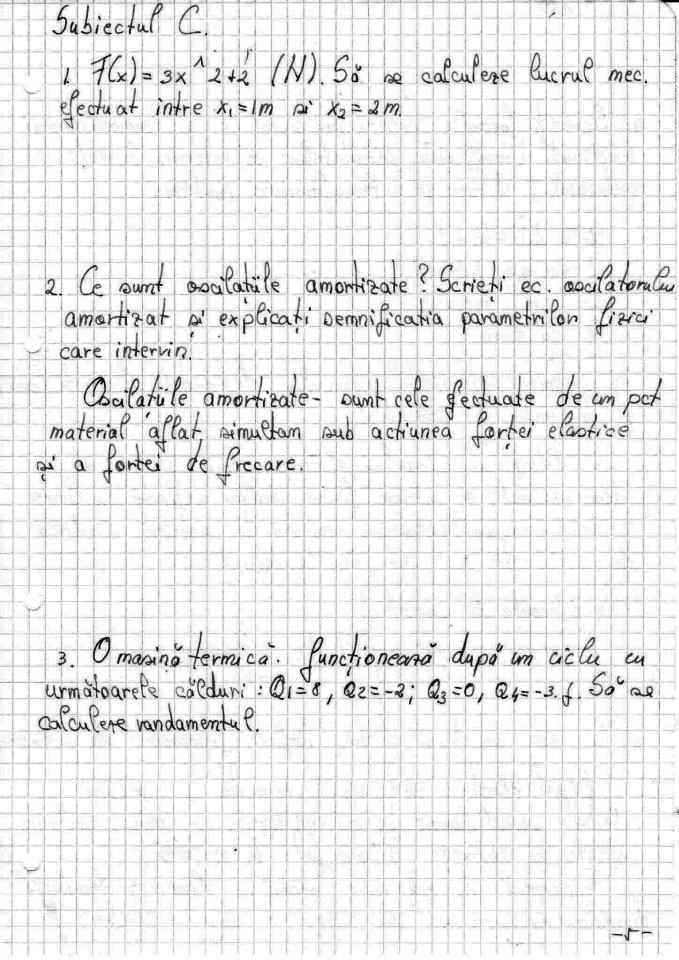 Subiectul C.
1. F(x) = 3x^2+2 (N). Să se calculeze lucrul mec.
efectuat intre x₁=1m si x₂=2m.
2. Ce sunt oscilațiile amortizate? Scrieți ec. oscilatorului
amortizat și explicați semnificatia parametrilor fizici
care intervin.
Oscilațiile amortizate- sunt cele efectuate de un pct
material aflat simultan sub actiunea forței elastice
și a forței de frecare.
3. O masină termică. funcționează după un ciclu cu
următoarele călduri: Q1=8, Q2=-2; Q3=0, Q4=-3.J. Să se
calculeze randamentul.
-5-